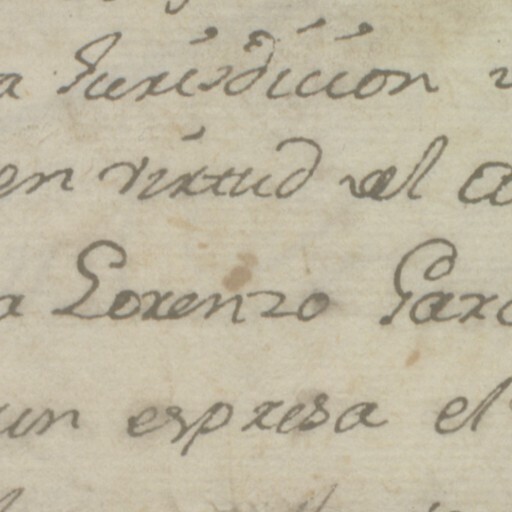 a Jurisdicion
en virtud del
a Lorenzo Garc
un espresa el